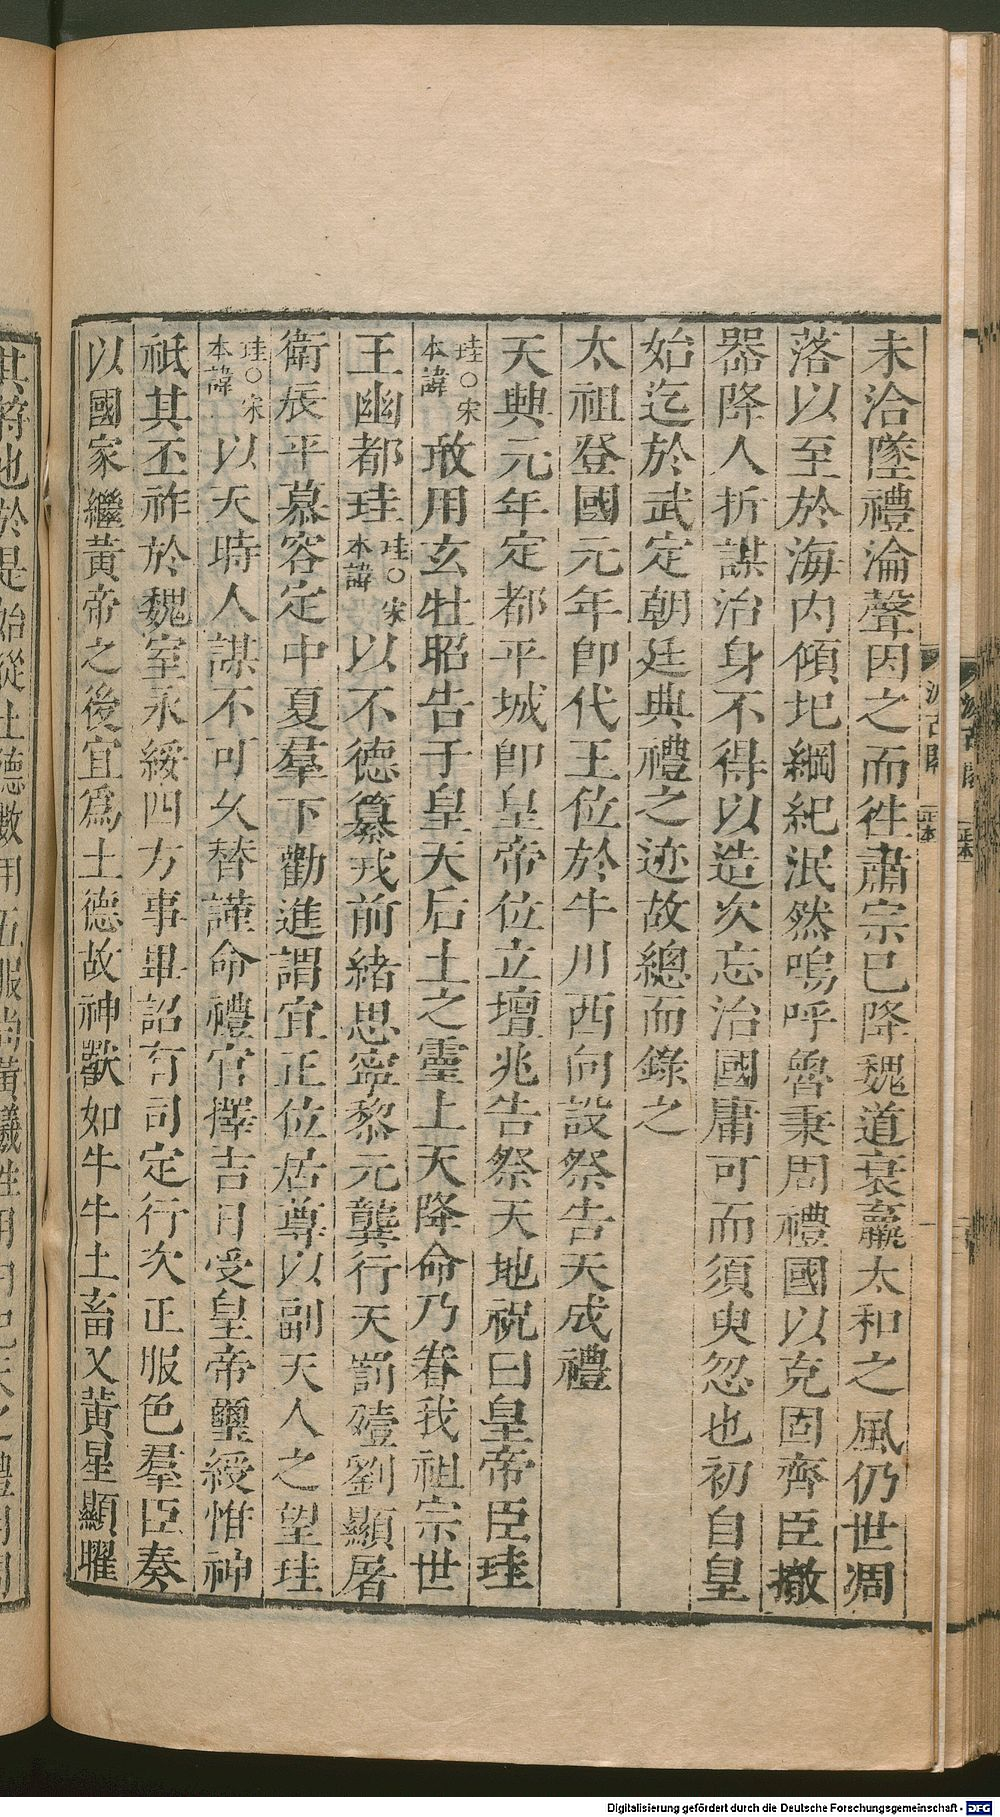 未洽墜禮淪聲因之而徃肅宗已降魏道衰羸太和之風仍世凋
落以至於海内傾圮綱紀泯然嗚呼魯秉周禮國以克固齊臣撤
器降人折謀治身不得以造次忘治國庸可而須臾忽也初自皇
始迄於武定朝廷典禮之迹故總而錄之
太祖登國元年卽代王位於牛川西向設祭告天成禮
天興元年定都平城卽皇帝位立壇兆告祭天地祝曰皇帝臣珪
珪○宋本諱敢用玄牡昭告于皇天后土之靈上天降命乃眷我祖宗世
王幽都珪珪○宋本諱以不德纂戎前緒思寧黎元龔行天罰殪劉顯屠
衛辰平慕容定中夏羣下勸進謂宜正位居尊以副天人之望珪
珪○宋本諱以天時人謀不可乆替謹命禮官擇吉日受皇帝璽綬惟神
祇其丕祚於魏室永綏四方事畢詔有司定行次正服色羣臣奏
以國家繼黃帝之後宜爲土德故神獸如牛牛土畜又黃星顯曜
其符也於是始從土德數用五服尚黃犧牲用白祀天之禮用周
汲古閣
正本
一
Digitalisierung gefördert durch die Deutsche Forschungsgemeinschaft - DFG